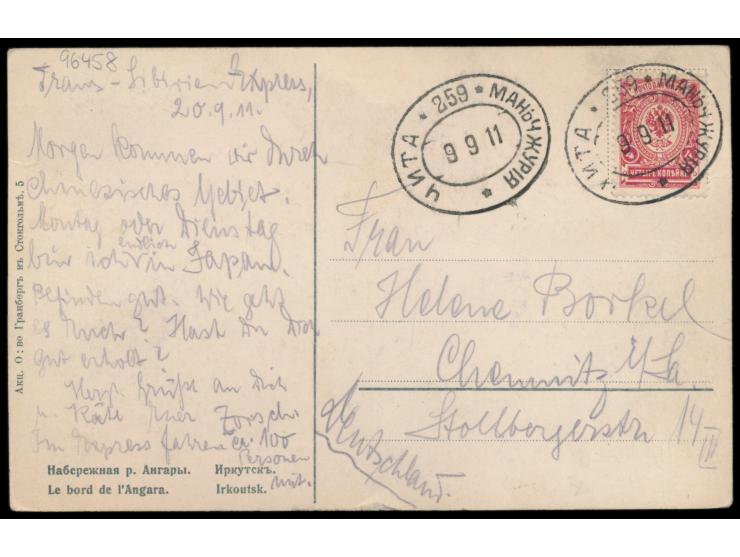 96458
Trans-Sibirien Express,
20.9.11.
Morgen kommen wir durch
Chinesisches Gebiet.
Montag oder Dienstag
bin ich endlich in Japan.
Befinden gut. Wie geht
es Euch? Hast Du Dich
gut erholt?
Herzl. Grüße an Dich
u. Käte Euer
Im Express fahren ca. 100
Personen
mit.
Набережная р. Ангары. Иркутскъ.
Le bord de l'Angara. Irkoutsk.
Акц. О: во Гранбергъ въ Стокгольмѣ. 5
ЧИТА * 259 * МАНЬЧЖУРІЯ *
9 9 11
ЧИТА * 259 * МАНЬЧЖУРІЯ *
9 9 11
ЧЕТЫРЕ КОПѢЙКИ
Frau
Helene Borkel
Chemnitz i/Sa.
Stollbergerstr 14 III
Deutschland.